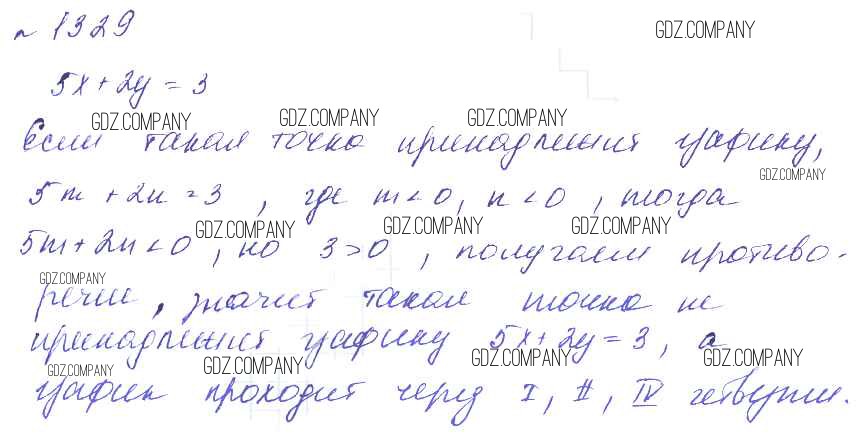 № 1329
GDZ.COMPANY
5x + 2y = 3
GDZ.COMPANY GDZ.COMPANY GDZ.COMPANY
Если такая точка принадлежит графику,
GDZ.COMPANY
5m + 2n = 3, где m < 0, n < 0, тогда
GDZ.COMPANY GDZ.COMPANY GDZ.COMPANY
5m + 2n < 0, но 3 > 0, получаем противо-
GDZ.COMPANY
речие, значит такая точка не
принадлежит графику 5x + 2y = 3, а
GDZ.COMPANY GDZ.COMPANY GDZ.COMPANY GDZ.COMPANY
график проходит через I, II, IV четверти.